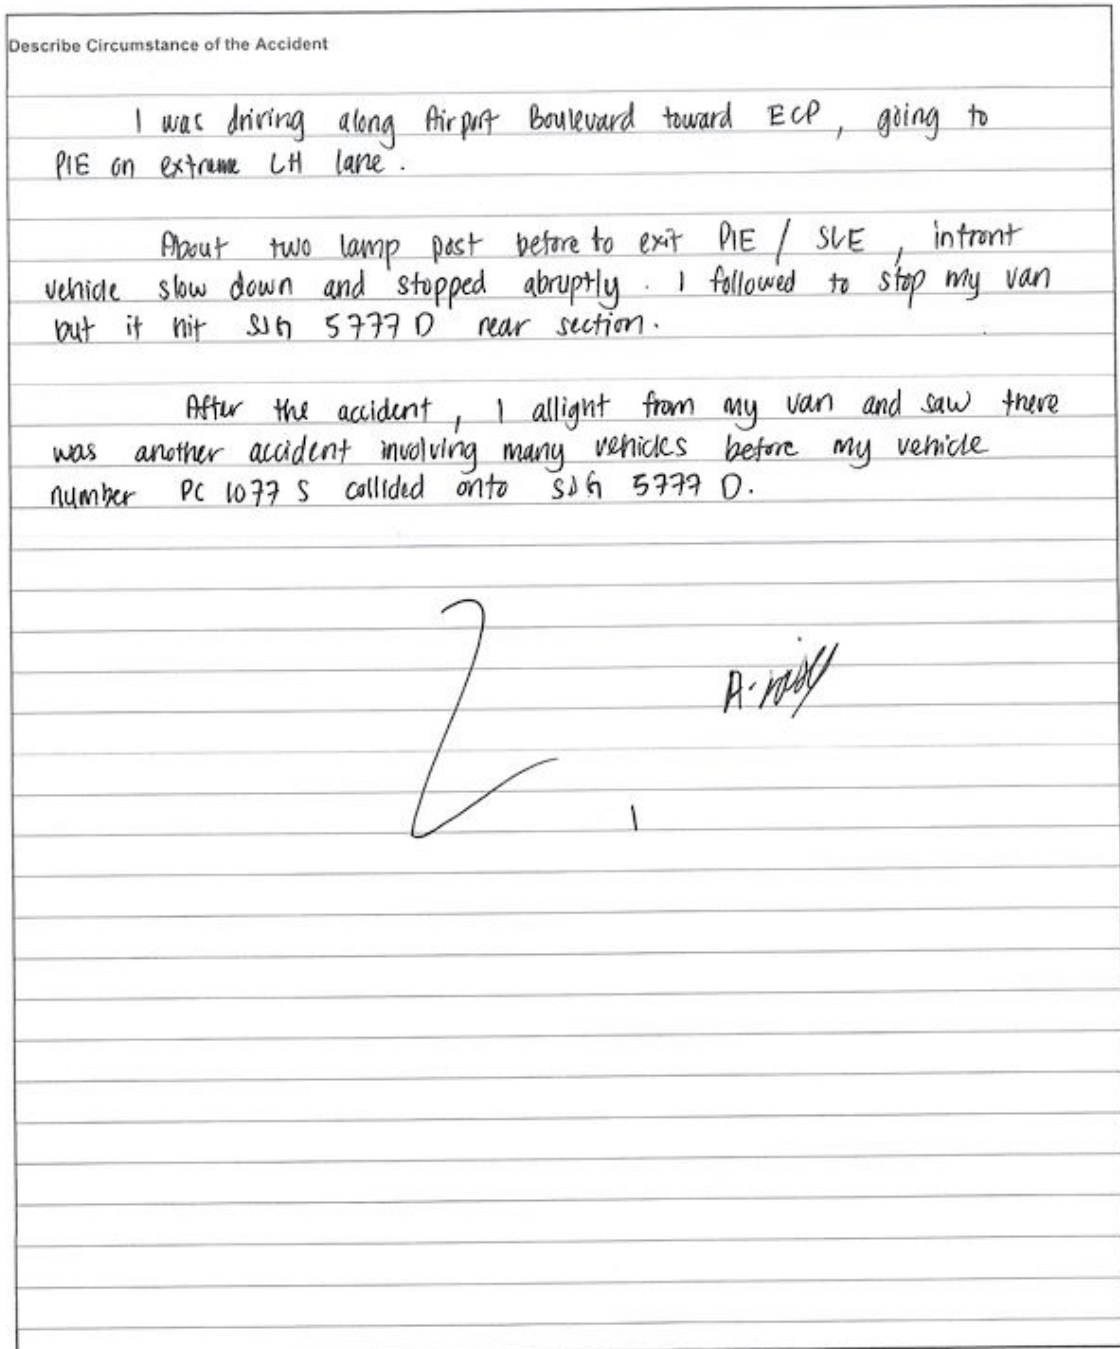 Describe Circumstance of the Accident
I was driving along Airport Boulevard toward ECP, going to
PIE on extreme LH lane.
About two lamp post before to exit PIE / SLE, infront
vehicle slow down and stopped abruptly. I followed to stop my van
but it hit SJG 5777 D rear section.
After the accident, I allight from my van and saw there
was another accident involving many vehicles before my vehicle
number PC 1077 S collided onto SJG 5777 D.